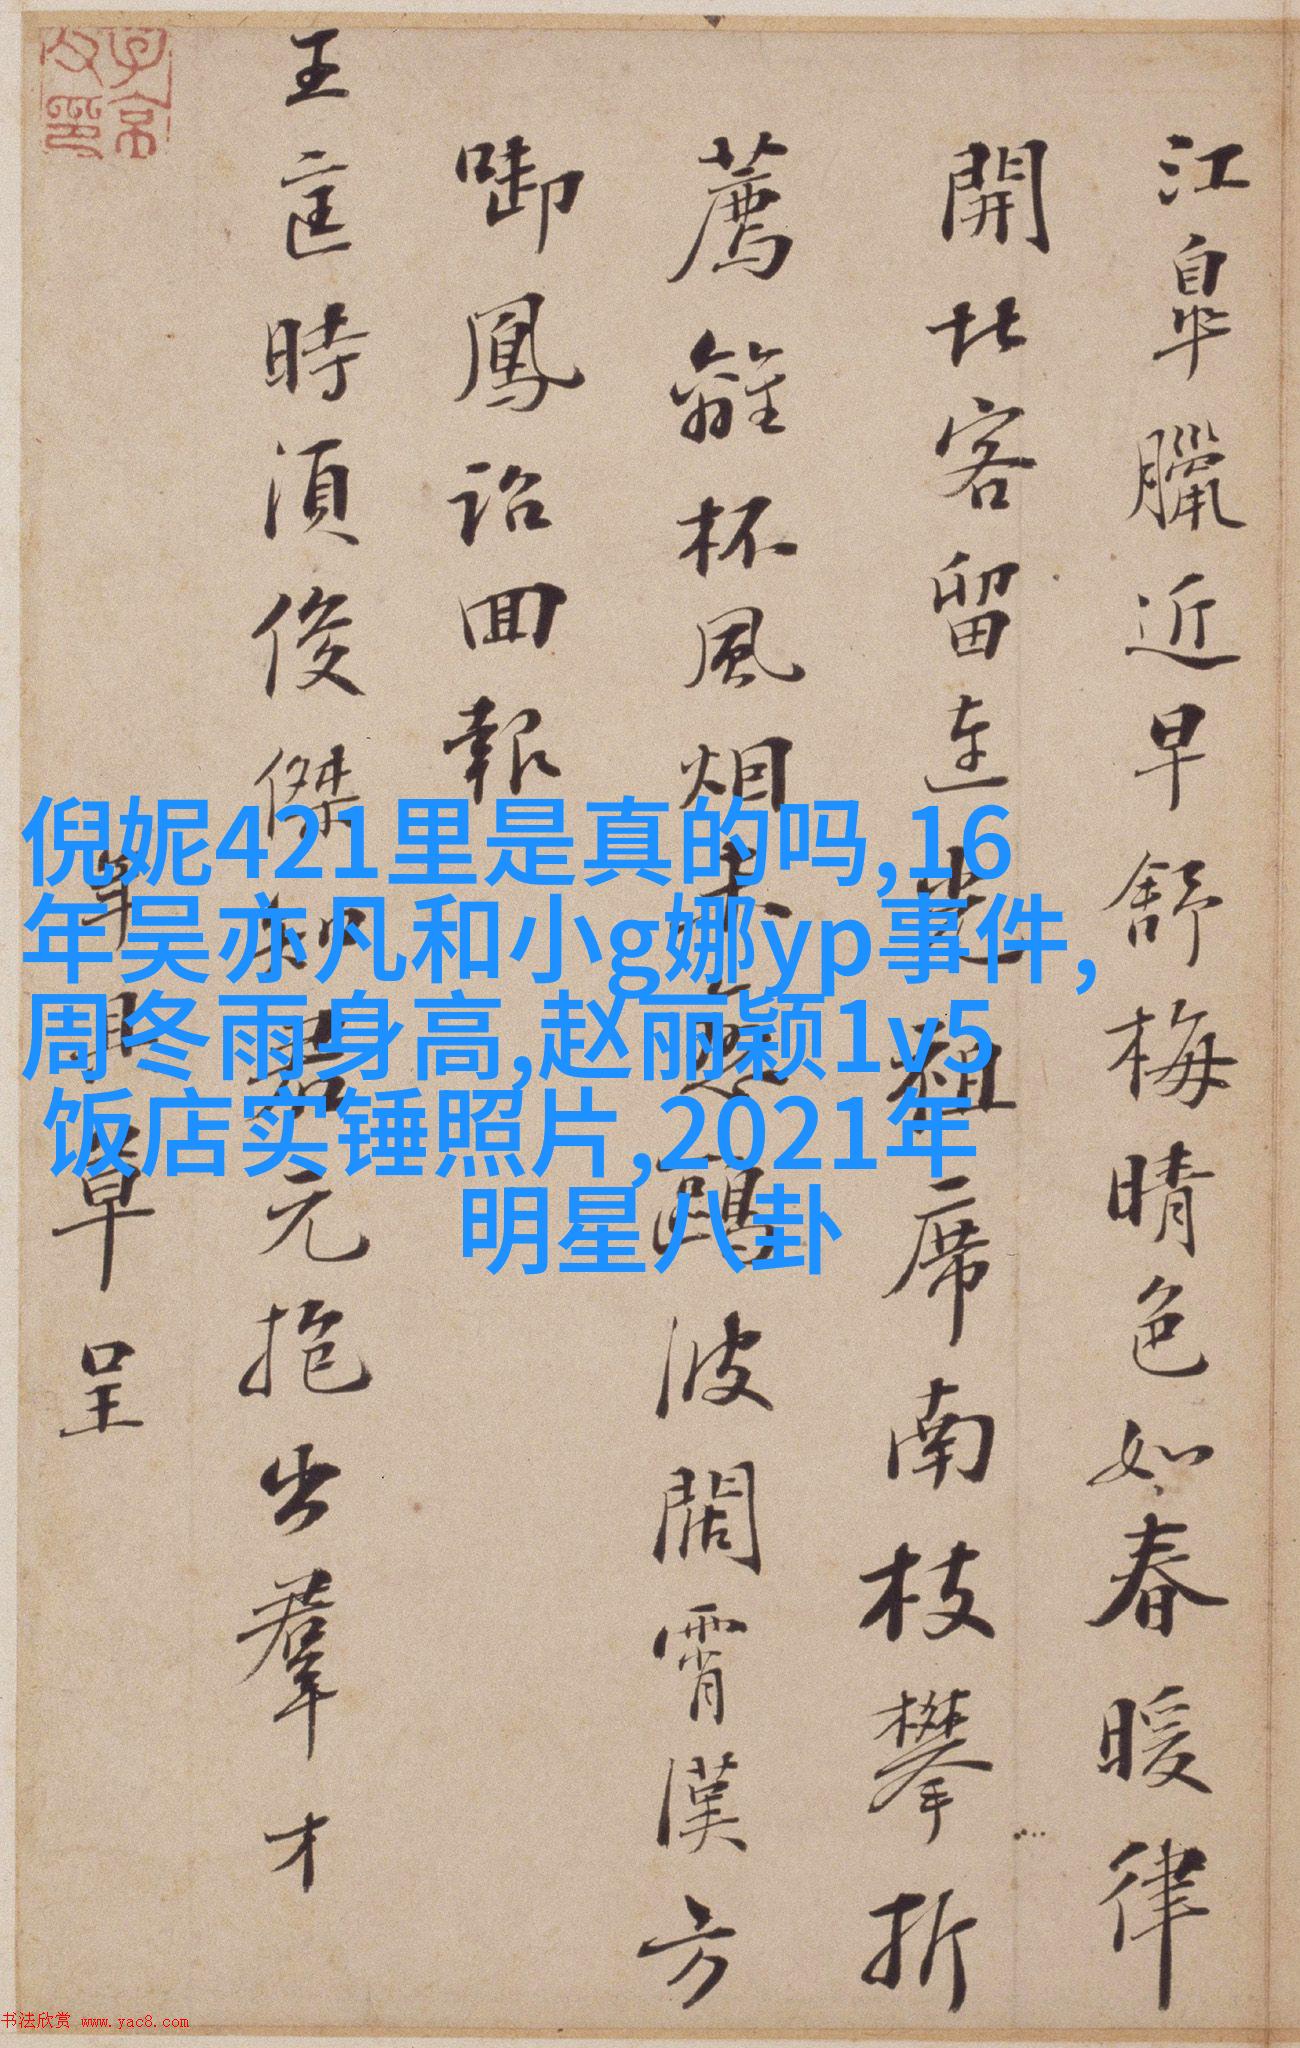 江皐臘近早舒梅晴色如春暖律
開北客留連席南枝攀折
薦離杯風烟未鷗波闊霄漢方
啣鳳詔回報
王匡時須俊傑如君元抱出羣才
草呈
子京父印
倪妮421里是真的吗,16
年吴亦凡和小g娜yp事件,
周冬雨身高,赵丽颖1v5
饭店实锤照片,2021年
明星八卦
书法欣赏 www.yac8.com